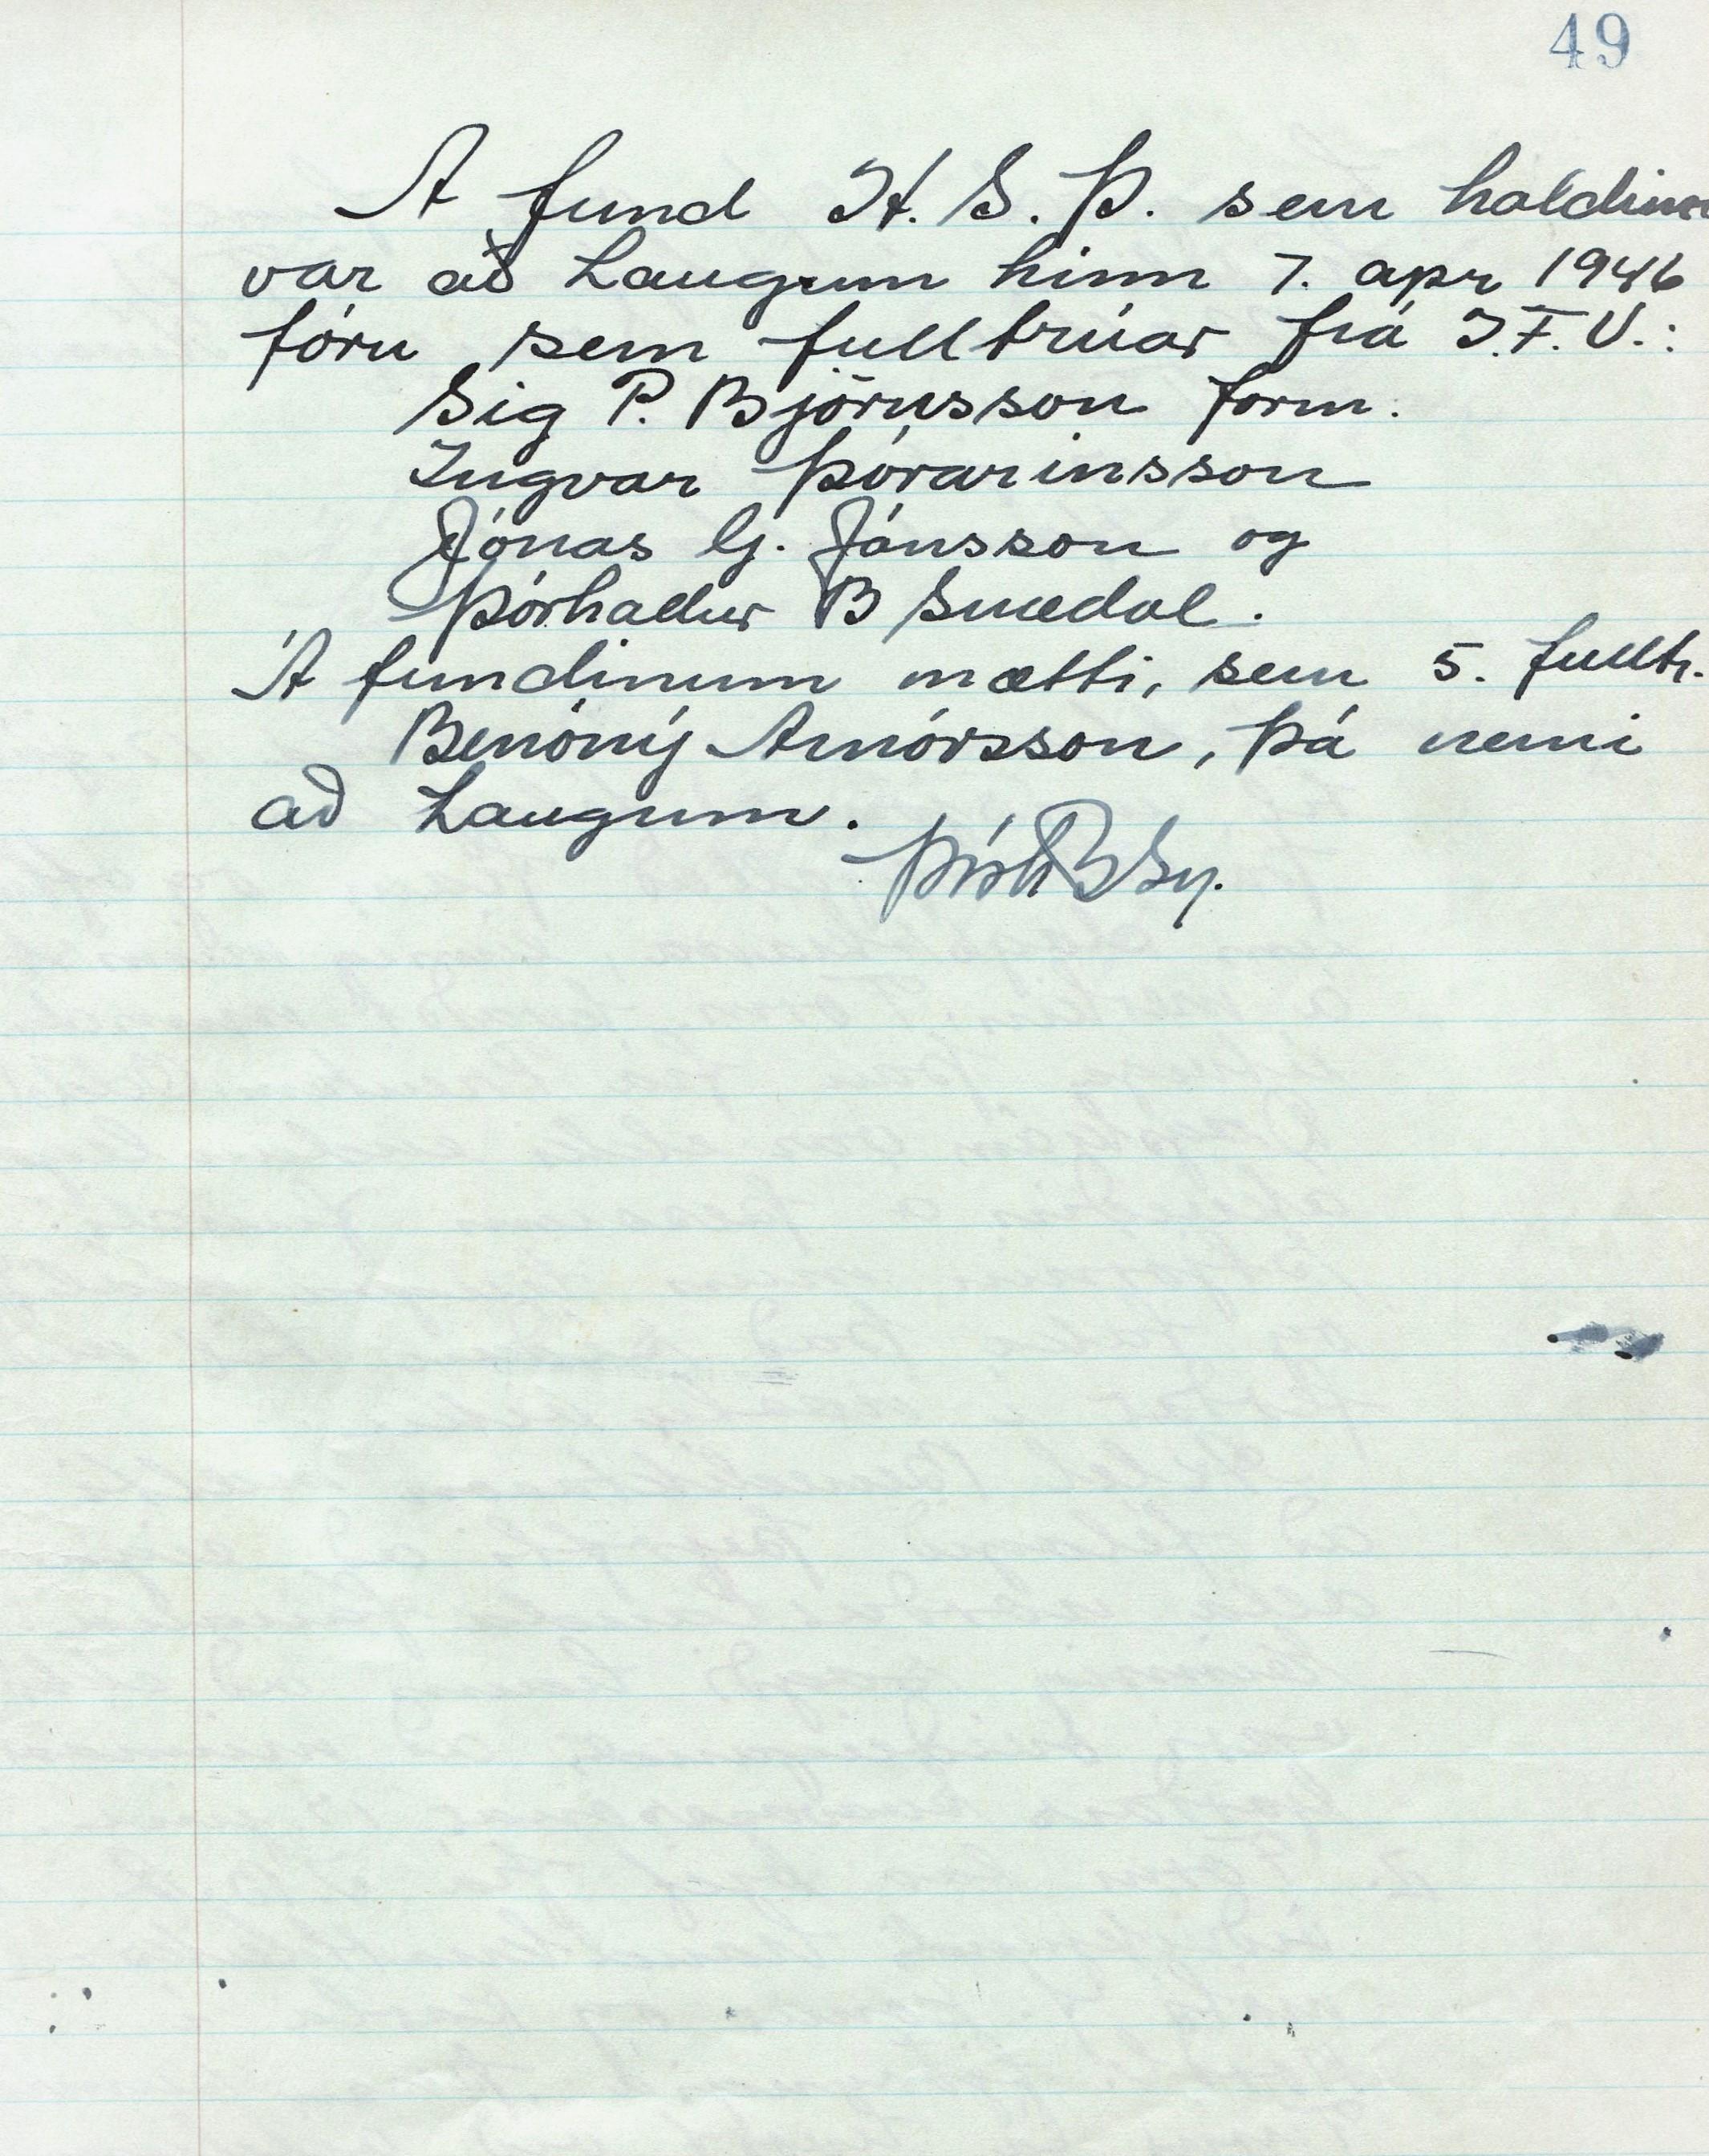 49
Á fund H. S. Þ. sem haldinn
var að Laugum hinn 7. apr 1946
fóru sem fulltrúar frá I.F.V.:
Sig P. Björnsson form.
Ingvar Þórarinsson
Jónas G. Jónsson og
Þórhallur B Snædal.
Á fundinum mætti, sem 5. fulltr.
Benóný Arnórsson, þá nemi
að Laugum.
ÞórhBSn.